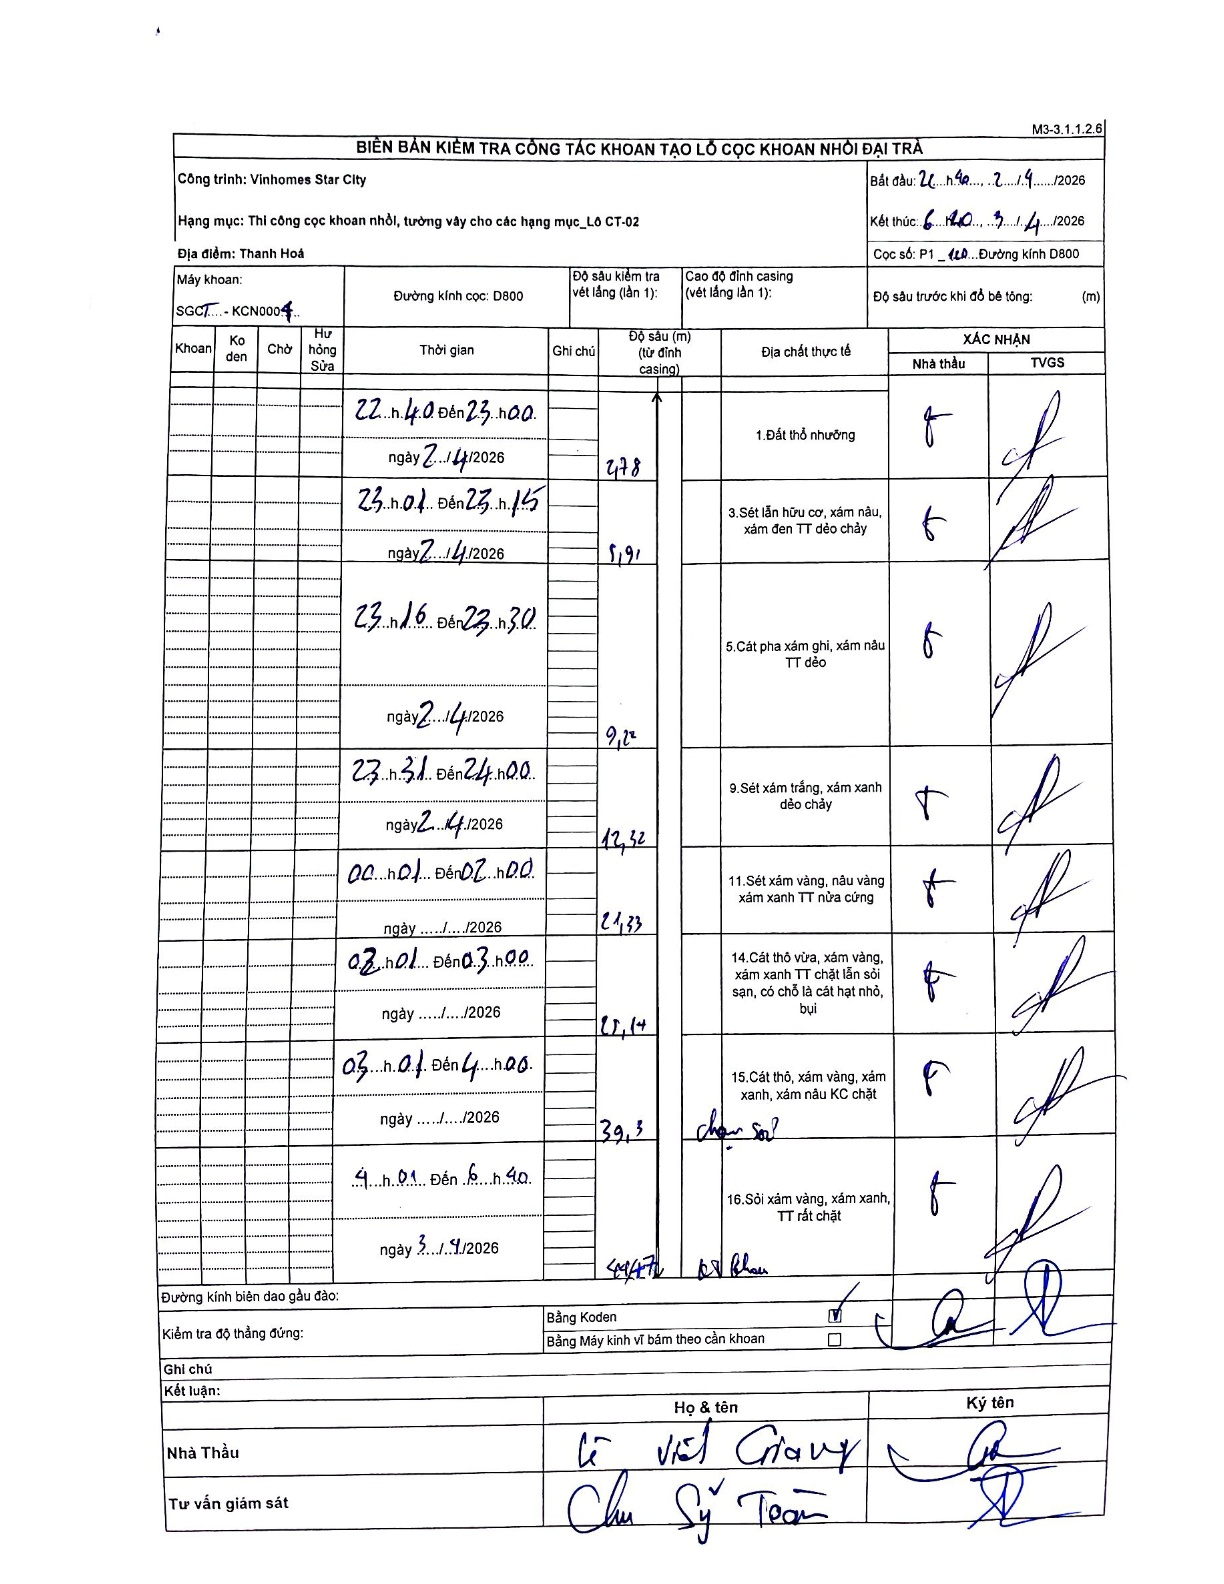 M3-3.1.1.2.6
BIÊN BẢN KIỂM TRA CÔNG TÁC KHOAN TẠO LỖ CỌC KHOAN NHỒI ĐẠI TRÀ
Công trình: Vinhomes Star City
Bắt đầu: 22...h.40..., ..2..../.4....../2026
Hạng mục: Thi công cọc khoan nhồi, tường vây cho các hạng mục_Lô CT-02
Kết thúc: 6...h40..., ..3..../..4../2026
Địa điểm: Thanh Hoá
Cọc số: P1_...Đường kính D800
Máy khoan:
SGCT....- KCN0004..
Đường kính cọc: D800
Độ sâu kiểm tra vét lắng (lần 1):
Cao độ đỉnh casing (vét lắng lần 1):
Độ sâu trước khi đổ bê tông: (m)
Khoan
Ko den
Chờ
Hư hỏng Sửa
Thời gian
Ghi chú
Độ sâu (m) (từ đỉnh casing)
Địa chất thực tế
XÁC NHẬN
Nhà thầu
TVGS
22...h.40. Đến 23..h00.
ngày 2.../4/2026
2,78
1.Đất thổ nhưỡng
23..h.01.. Đến 23..h.15
ngày 2..../4/2026
5,91
3.Sét lẫn hữu cơ, xám nâu,
xám đen TT dẻo chảy
23...h.16... Đến 23...h.30..
ngày 2..../4/2026
9,22
5.Cát pha xám ghi, xám nâu
TT dẻo
23...h.31.. Đến 24..h00..
ngày 2...4./2026
12,32
9.Sét xám trắng, xám xanh
dẻo chảy
00....h01... Đến 02...h00.
ngày ...../..../2026
21,33
11.Sét xám vàng, nâu vàng
xám xanh TT nửa cứng
02..h01.... Đến 03..h00..
ngày ...../..../2026
25,14
14.Cát thô vừa, xám vàng,
xám xanh TT chặt lẫn sỏi
sạn, có chỗ là cát hạt nhỏ,
bụi
03....h.01. Đến 4....h00.
ngày ...../..../2026
39,3
15.Cát thô, xám vàng, xám
xanh, xám nâu KC chặt
chạm sỏi
4...h.01... Đến .6...h.40..
ngày 3.../.4/2026
16.Sỏi xám vàng, xám xanh,
TT rất chặt
KT khoan
Đường kính biên dao gầu đào:
Kiểm tra độ thẳng đứng:
Bằng Koden
Bằng Máy kinh vĩ bám theo cần khoan
Ghi chú
Kết luận:
Họ & tên
Ký tên
Nhà Thầu
Lê Viết Giang
Tư vấn giám sát
Chu Sỹ Toàn